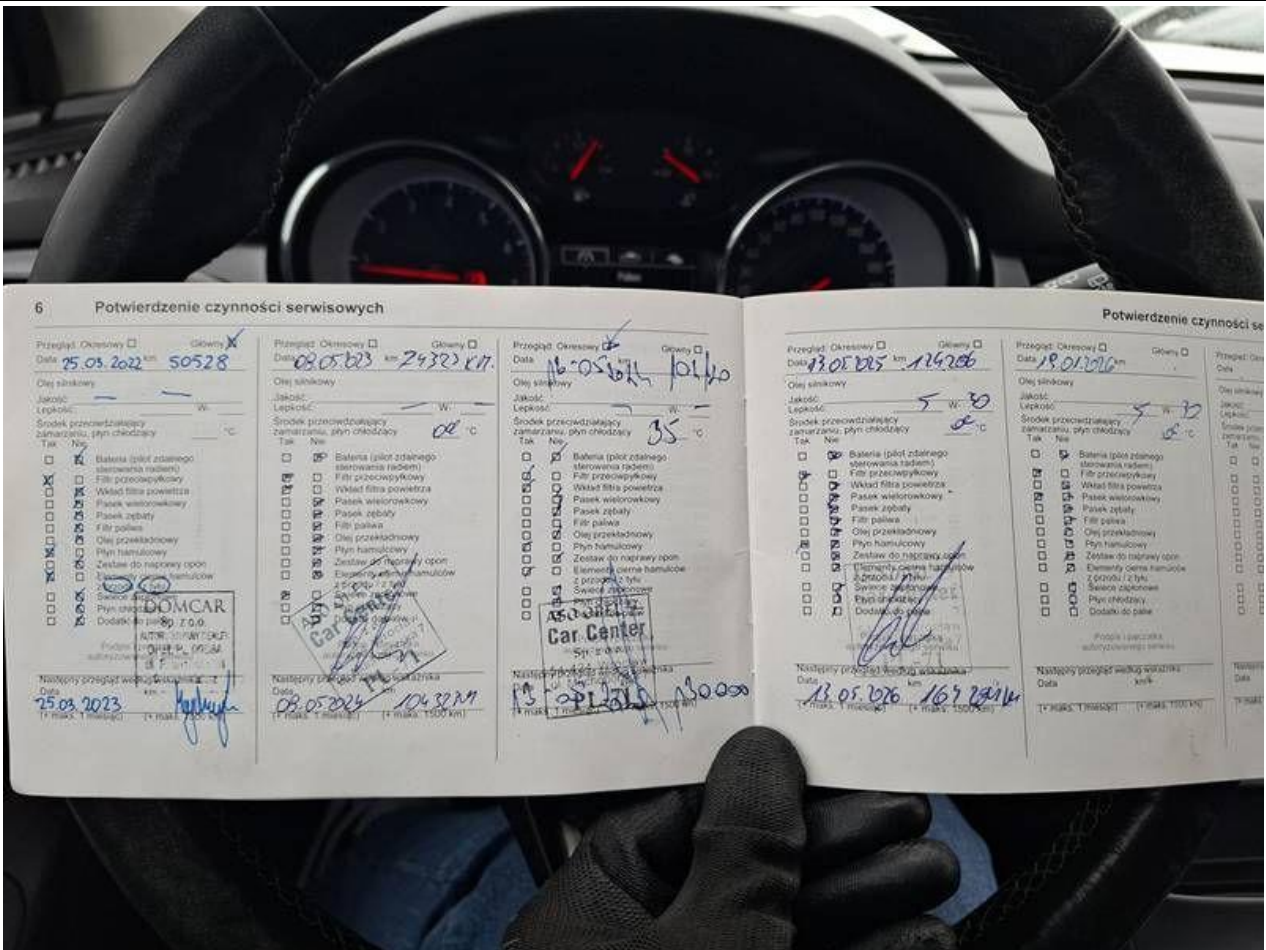 6 Potwierdzenie czynności serwisowych
Przegląd: Okresowy Główny
Data 25.03.2022 km 50528
Olej silnikowy
Jakość:
Lepkość: W-
Środek przeciwdziałający
zamarzaniu, płyn chłodzący °C
Tak Nie
Bateria (pilot zdalnego
sterowania radiem)
Filtr przeciwpyłkowy
Wkład filtra powietrza
Pasek wielorowkowy
Pasek zębaty
Filtr paliwa
Olej przekładniowy
Płyn hamulcowy
Zestaw do naprawy opon
Elementy cierne hamulców
Świece zapłonowe
Płyn chłodzący
Dodatki do paliw
DOMCAR
Sp. z o.o.
Następny przegląd według wskaźnika
Data km
25.03.2023
(+ maks. 1 miesiąc) (+ maks. 1500 km)
Przegląd: Okresowy Główny
Data 09.05.2023 km 74323 KM.
Olej silnikowy
Jakość:
Lepkość: W-
Środek przeciwdziałający
zamarzaniu, płyn chłodzący °C
Tak Nie
Bateria (pilot zdalnego
sterowania radiem)
Filtr przeciwpyłkowy
Wkład filtra powietrza
Pasek wielorowkowy
Pasek zębaty
Filtr paliwa
Olej przekładniowy
Płyn hamulcowy
Zestaw do naprawy opon
Elementy cierne hamulców
z przodu / z tyłu
Świece zapłonowe
Car Center
Następny przegląd według wskaźnika
09.05.2024
(+ maks. 1 miesiąc) (+ maks. 1500 km)
Przegląd: Okresowy Główny
Data km
Olej silnikowy
Jakość:
Lepkość: W-
Środek przeciwdziałający
zamarzaniu, płyn chłodzący 35 °C
Tak Nie
Bateria (pilot zdalnego
sterowania radiem)
Filtr przeciwpyłkowy
Wkład filtra powietrza
Pasek wielorowkowy
Pasek zębaty
Filtr paliwa
Olej przekładniowy
Płyn hamulcowy
Zestaw do naprawy opon
Elementy cierne hamulców
z przodu / z tyłu
Świece zapłonowe
ASO OPEL
Car Center
Sp. z o.o.
Następny przegląd według wskaźnika
130000
(+ maks. 1 miesiąc) (+ maks. 1500 km)
Potwierdzenie czynności se
Przegląd: Okresowy Główny
Data 13.05.2025 km 124206
Olej silnikowy
Jakość:
Lepkość: 5 W- 30
Środek przeciwdziałający
zamarzaniu, płyn chłodzący °C
Tak Nie
Bateria (pilot zdalnego
sterowania radiem)
Filtr przeciwpyłkowy
Wkład filtra powietrza
Pasek wielorowkowy
Pasek zębaty
Filtr paliwa
Olej przekładniowy
Płyn hamulcowy
Zestaw do naprawy opon
Elementy cierne hamulców
z przodu / z tyłu
Świece zapłonowe
Płyn chłodzący
Dodatki do paliw
Następny przegląd według wskaźnika
Data km
13.05.2026
(+ maks. 1 miesiąc) (+ maks. 1500 km)
Przegląd: Okresowy Główny
Data 19.01.2026 km
Olej silnikowy
Jakość:
Lepkość: 5 W- 30
Środek przeciwdziałający
zamarzaniu, płyn chłodzący °C
Tak Nie
Bateria (pilot zdalnego
sterowania radiem)
Filtr przeciwpyłkowy
Wkład filtra powietrza
Pasek wielorowkowy
Pasek zębaty
Filtr paliwa
Olej przekładniowy
Płyn hamulcowy
Zestaw do naprawy opon
Elementy cierne hamulców
z przodu / z tyłu
Świece zapłonowe
Płyn chłodzący
Dodatki do paliw
Podpis i pieczątka
autoryzowanego serwisu
Następny przegląd według wskaźnika
Data km
(+ maks. 1 miesiąc) (+ maks. 1500 km)